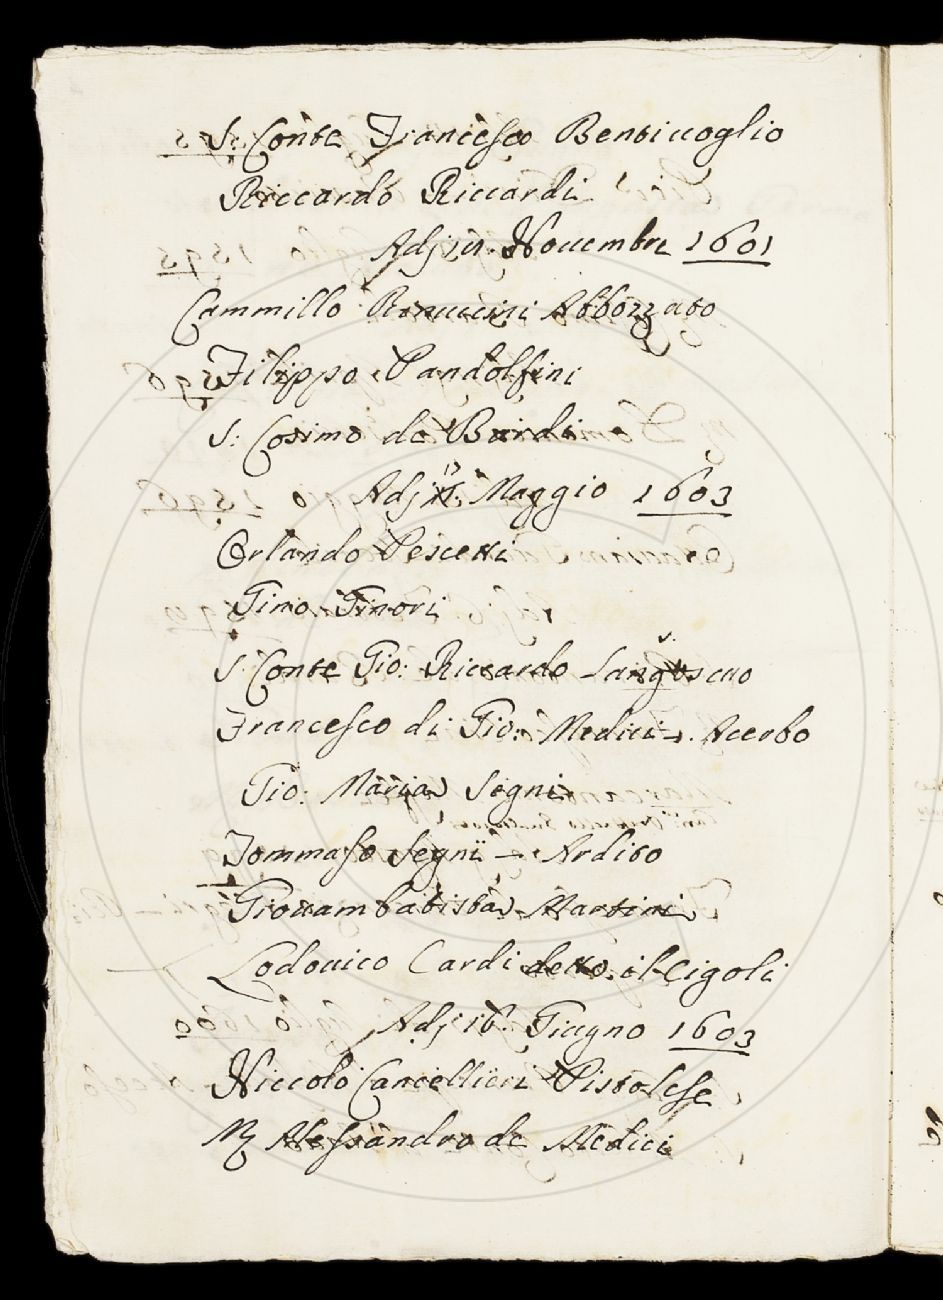 S. Conte Francesco Bentiuoglio
Riccardo Riccardi
Adj Nouembre 1601
Cammillo Rinuccini Abbozzato
Filippo Pandolfini
S: Cosimo de Bardi
Adj Maggio 1603
Orlando Pescetti
Gino Ginori
S. Conte Gio: Riccardo
Francesco di Gio: Medici - Acerbo
Gio: Maria Segni
Tommaso Segni - Ardito
Giouambatista Martini
Lodouico Cardi detto il Cigoli
Adj 16. Giugno 1603
Niccolò Cancellieri Pistolese
Alessandro de Medici